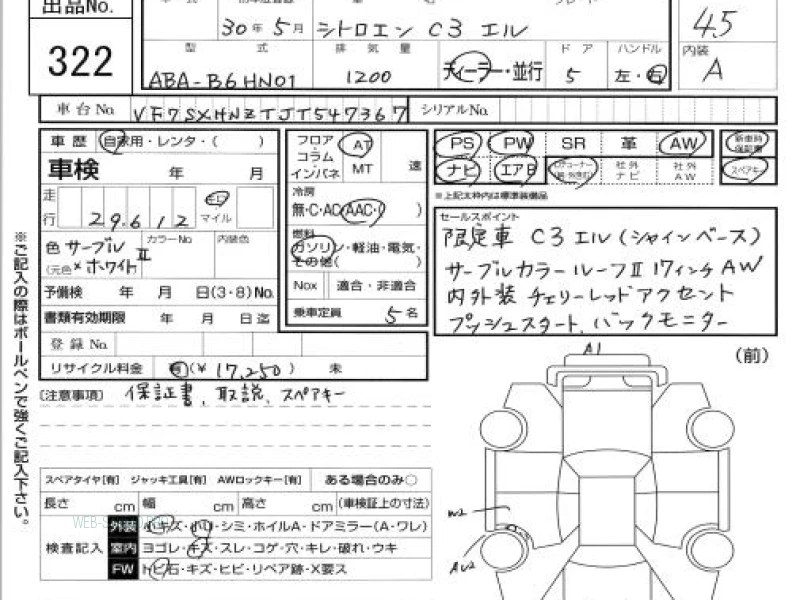 出品No.
322
30年5月 シトロエン C3 エル
4.5
型 式 排 気 量 ドア ハンドル
ABA-B6HN01 1200 ディーラー・並行 5 左・右
内装
A
車台No. VF7SXHNZTJT547367 シリアルNo.
車歴 自家用・レンタ・( )
車検 年 月
走行 29,612 キロ マイル
色 サーブルⅡ カラーNo 内装色
(元色 × ホワイト
予備検 年 月 日(3・8)No.
書類有効期限 年 月 日迄
登録No.
リサイクル料金 有(¥17,250) 未
フロア・コラム・インパネ AT MT 速
冷房
無・C・AC・AAC・( )
燃料
ガソリン・軽油・電気・その他( )
Nox 適合・非適合
乗車定員 5名
PS PW SR 革 AW 新車時保証書
ナビ エアB 社外ナビ 社外AW スペアキー
※上記太枠内は標準装備品
セールスポイント
限定車 C3エル(シャインベース)
サーブルカラールーフⅡ 17インチAW
内外装 チェリーレッドアクセント
プッシュスタート、バックモニター
(注意事項) 保証書、取説、スペアキー
(前)
A1
W2
AW2
スペアタイヤ[有] ジャッキ工具[有] AWロックキー[有] ある場合のみ○
長さ cm 幅 cm 高さ cm (車検証上の寸法)
検査記入
外装 小キズ・小凹・シミ・ホイルA・ドアミラー(A・ワレ)
室内 ヨゴレ・キズ・スレ・コゲ・穴・キレ・破れ・ウキ
FW トビ石・キズ・ヒビ・リペア跡・X要ス
※ご記入の際はボールペンで強くご記入下さい。